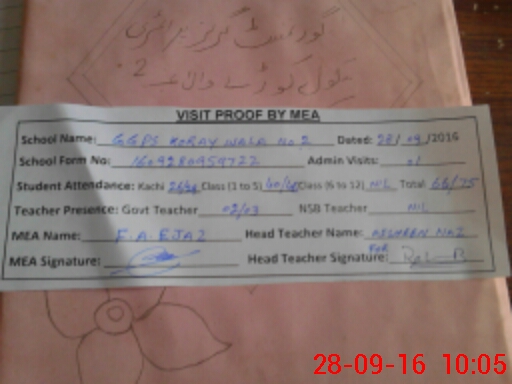 گورنمنٹ گرلز پرائمری
سکول کوڑے والا نمبر 2
VISIT PROOF BY MEA
School Name: GGPS KORAY WALA No 2 Dated: 28/09/2016
School Form No: 1609280959722 Admin Visits: 01
Student Attendance: Kachi Class (1 to 5) Class (6 to 12) NIL Total 66/75
Teacher Presence: Govt Teacher 02/03 NSB Teacher NIL
MEA Name: F.A EJAZ Head Teacher Name: NAZ
MEA Signature: Head Teacher Signature: FOR
28-09-16 10:05